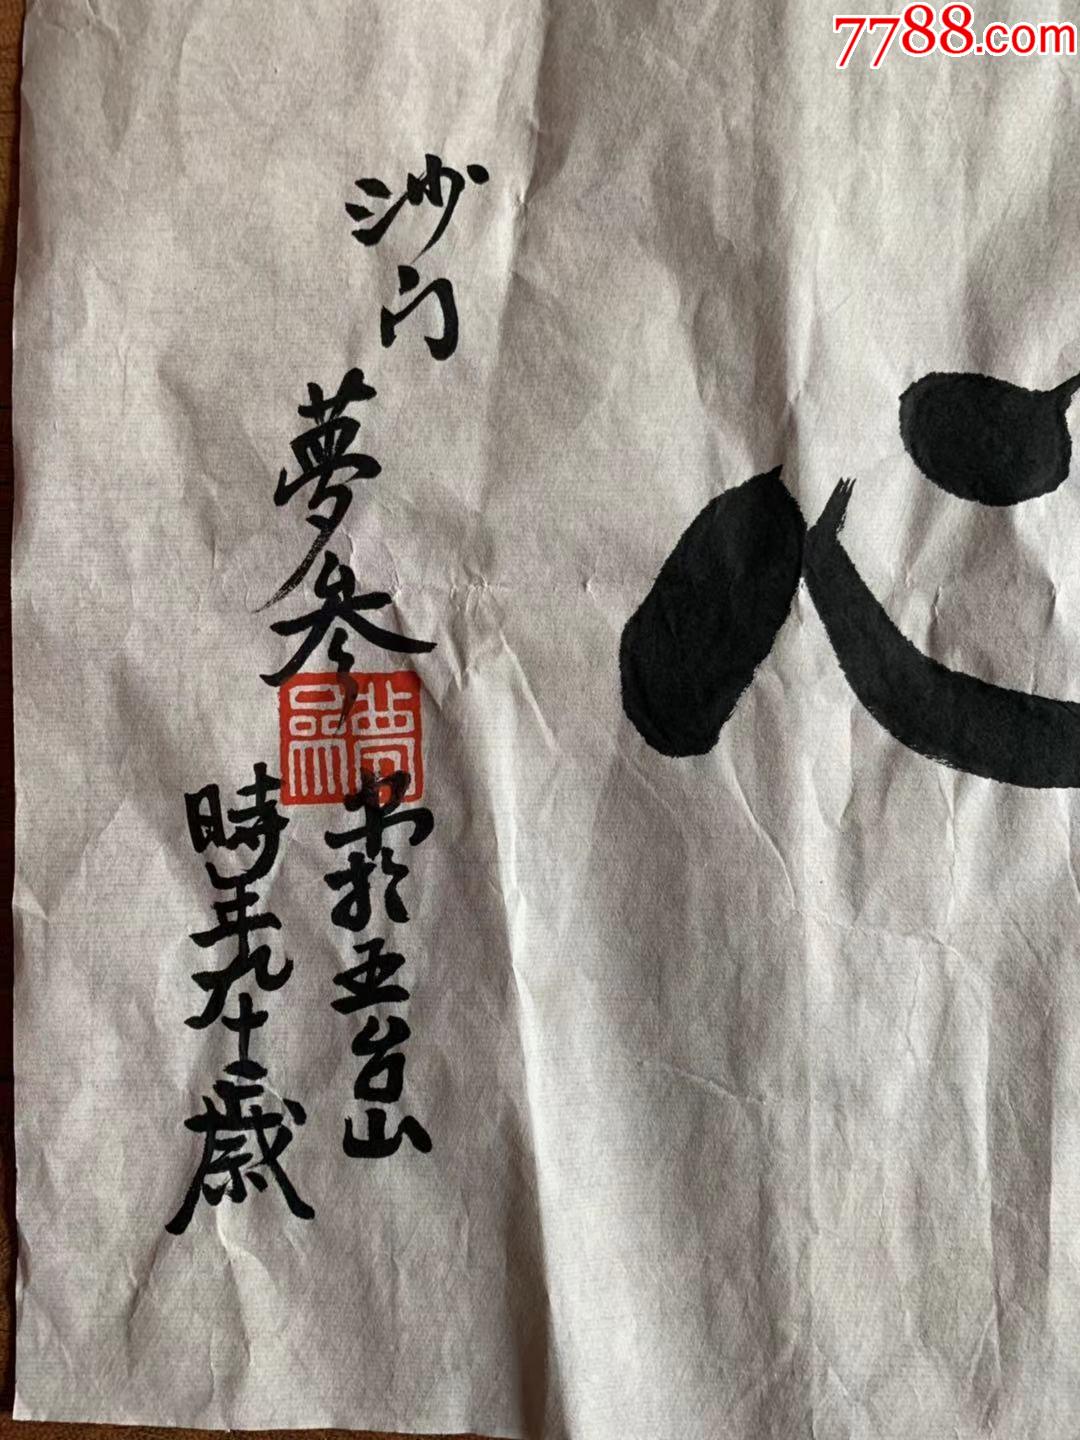 7788.com
心
沙门
夢参
夢參
书於五台山
時年九十二歲